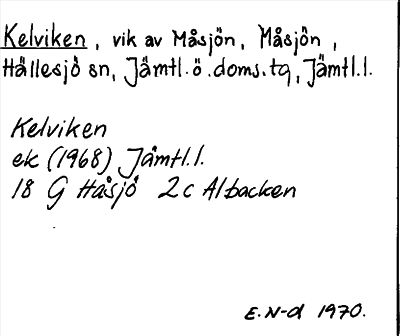 Kelviken, vik av Måsjön, Måsjön,
Hällesjö sn, Jämtl.ö.doms.tg, Jämtl.l.
Kelviken
ek (1968) Jämtl.l.
18 G Håsjö 2c Albacken
E.N-d 1970.